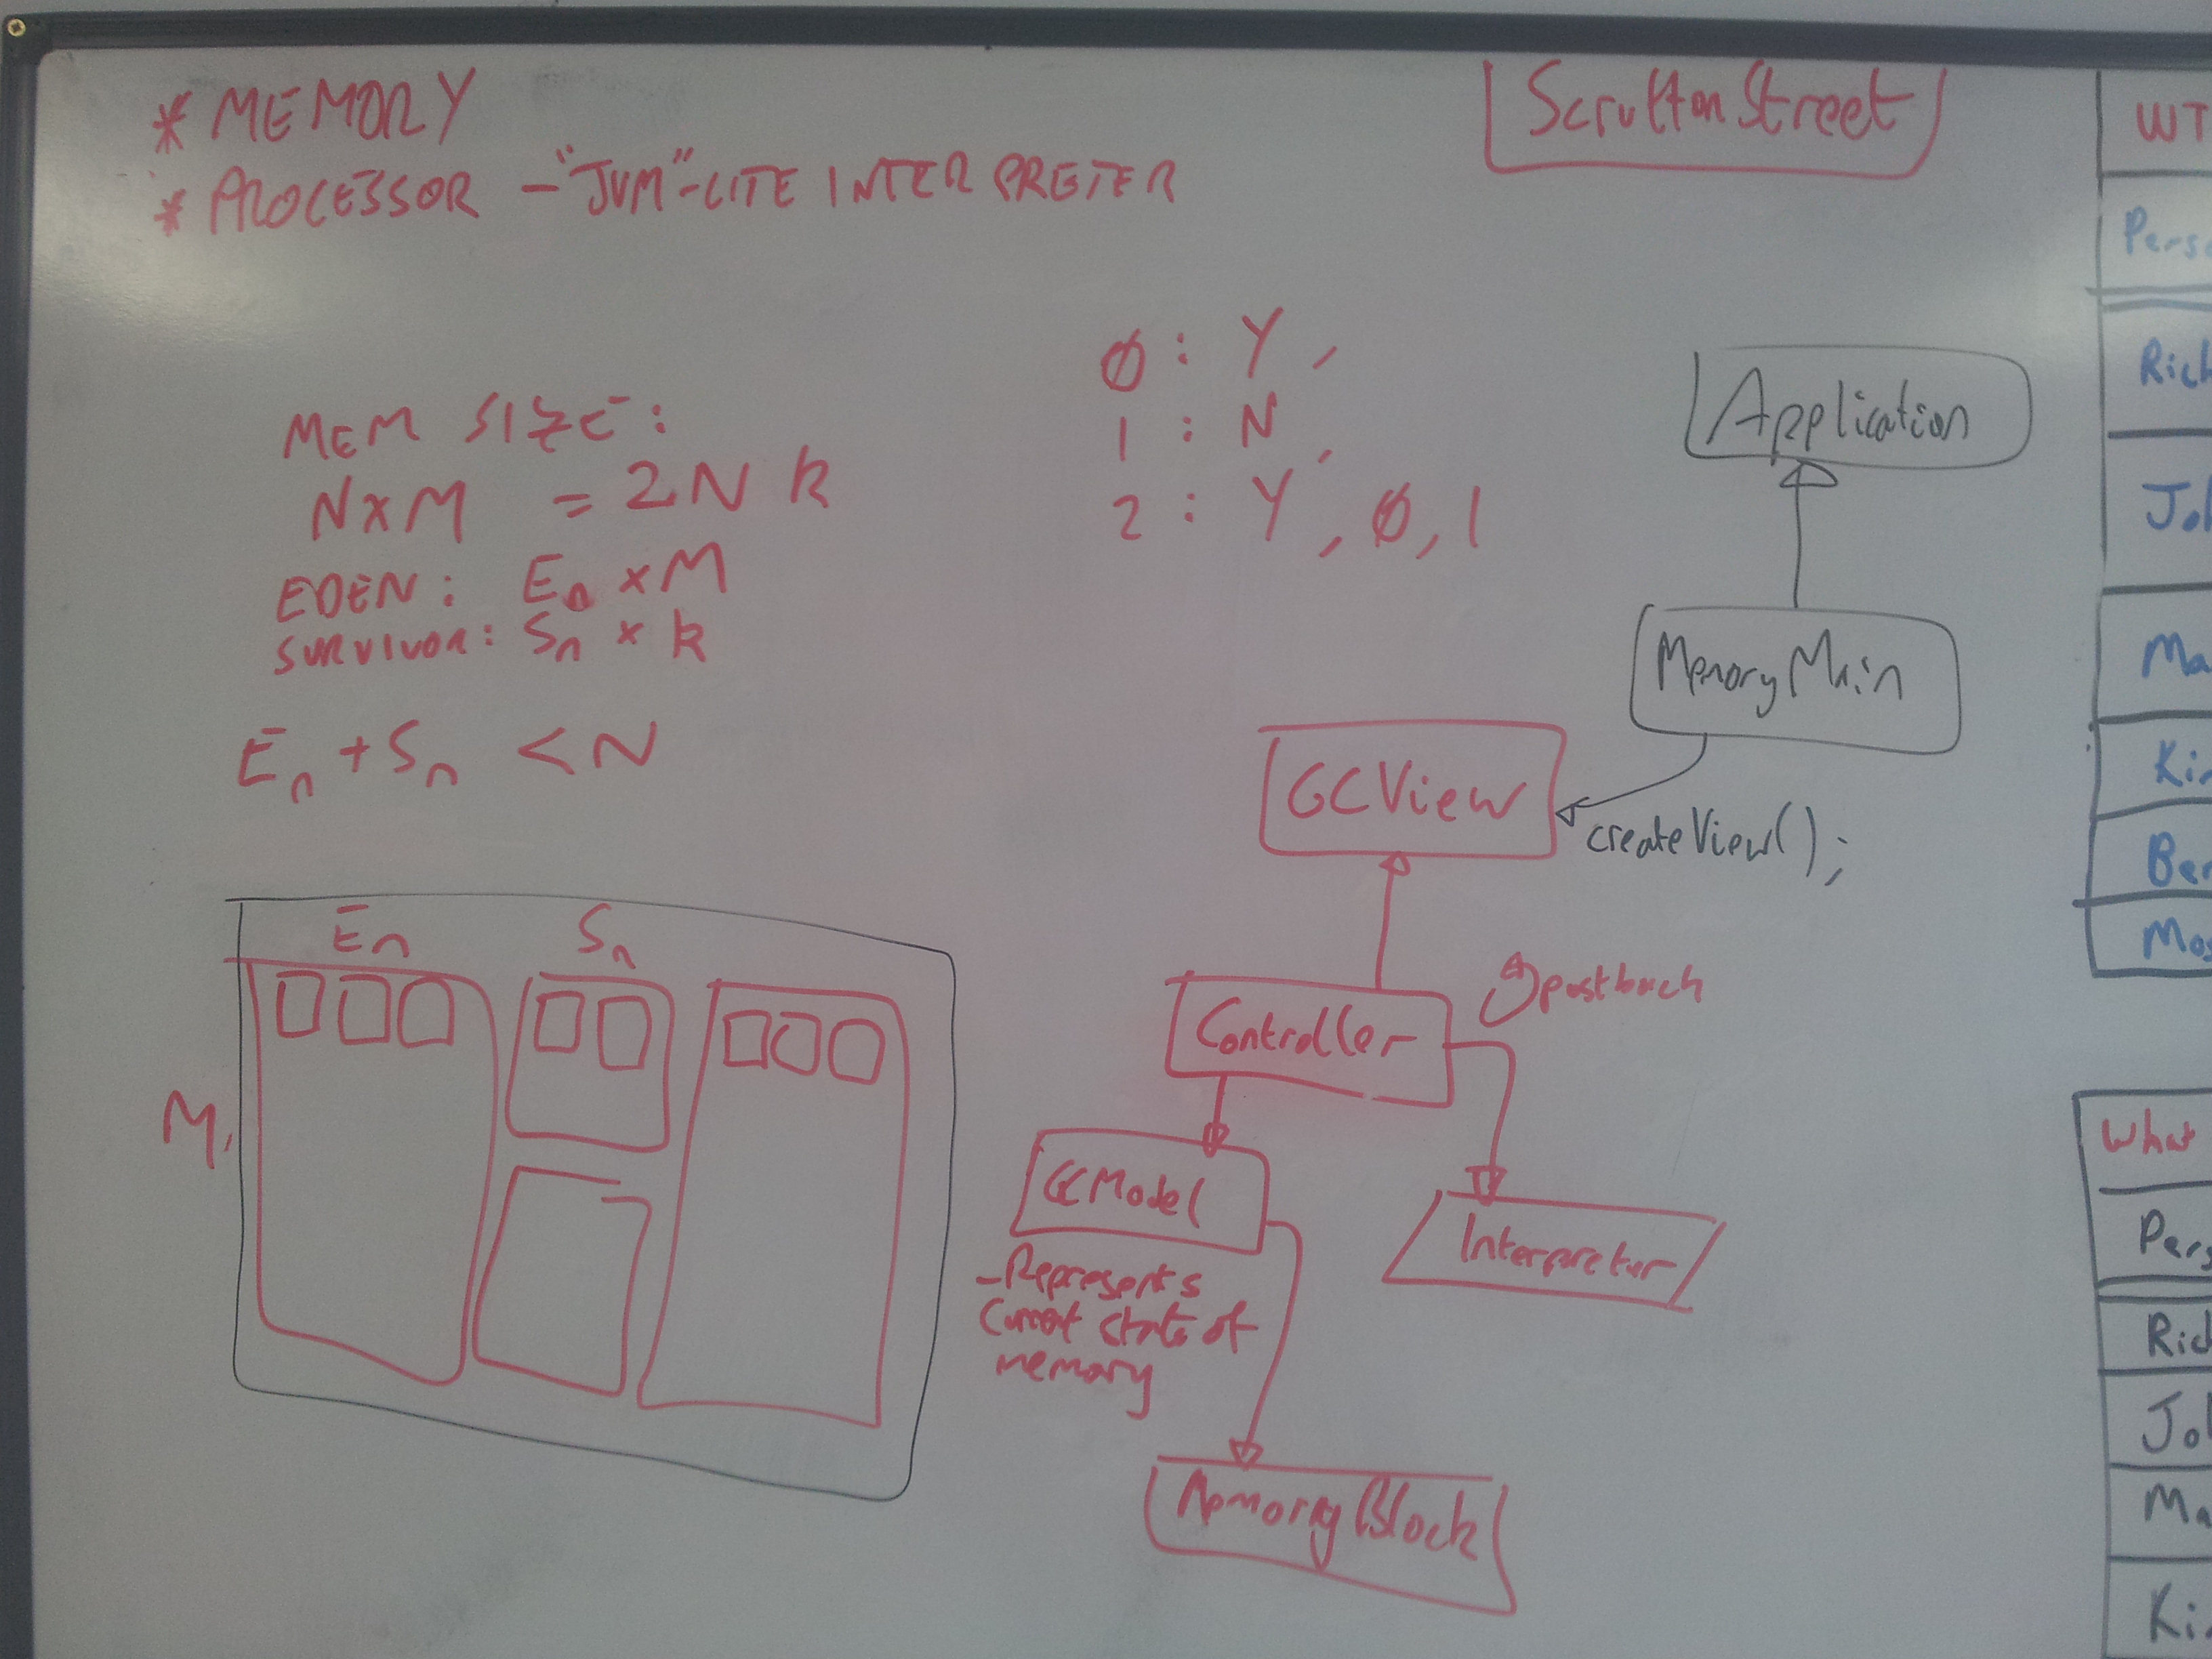 * MEMORY
* PROCESSOR - "JVM"-LITE INTERPRETER
Scrutton Street
MEM SIZE:
N x M = 2N k
EDEN: En x M
SURVIVOR: Sn x k
En + Sn < N
0 : Y ,
1 : N ,
2 : Y , 0, 1
Application
MemoryMain
GCView
createView();
Controller
postback
GCModel
- Represents
Current state of
memory
Interpreter
MemoryBlock
En
Sn
M
WT
Pers
Rich
Joh
Ma
Kir
Ber
Mos
What
Pers
Ric
Jo
Ma
Ki